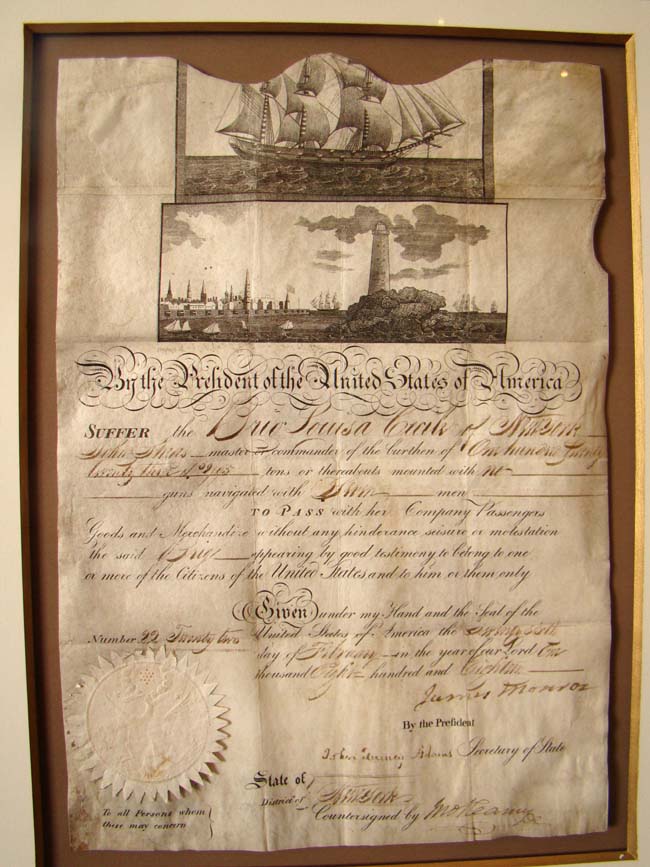 By the President of the United States of America
SUFFER the Brig Louisa of New York
John master or commander of the burthen of One hundred
tons or thereabouts mounted with no
guns navigated with men
TO PASS with her Company Passengers
Goods and Merchandize without any hinderance seisure or molestation
the said Brig appearing by good testimony to belong to one
or more of the Citizens of the United States and to him or them only
Given under my Hand and the Seal of the
Number 22 Twenty two United States of America the
day of February in the year of our Lord One
thousand Eight hundred and Eighteen
James Monroe
By the President
John Quincy Adams Secretary of State
State of
District of New York
Countersigned by
To all Persons whom
these may concern